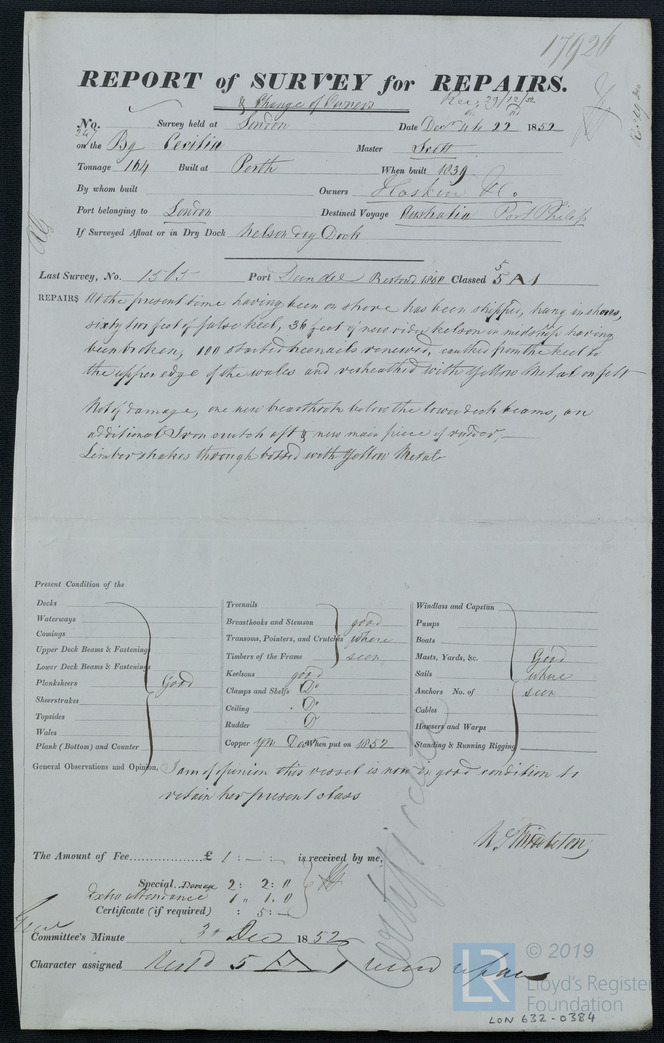 17926
REPORT of SURVEY for REPAIRS.
& Change of Owners
Rec, 29/12/52
No. Survey held at London Date Decr 22 1852
on the Bg Cecilia Master Scott
Tonnage 164 Built at Perth When built 1839
By whom built Owners Hoskin & Co.
Port belonging to London Destined Voyage Australia Port Philip
If Surveyed Afloat or in Dry Dock Nelson dry Dock
Last Survey, No. 1565 Port Dundee Restored 1850 Classed 5 5 A 1
REPAIRS At the present time having been on shore has been stripped, hung in shores,
sixty two feet of false keel, 36 feet of new rider kelson in midships having
been broken, 100 started treenails renewed, caulked from the keel to
the upper edge of the wales and resheathed with Yellow Metal on felt
Not of damage, one new breasthook below the lower deck beams, an
additional Iron crutch aft & new main piece of rudder,
Limber strakes through bolted with Yellow Metal
Present Condition of the
Decks
Waterways
Comings
Upper Deck Beams & Fastenings
Lower Deck Beams & Fastenings
Planksheers
Sheerstrakes
Topsides
Wales
Plank (Bottom) and Counter
Good
Treenails
Breasthooks and Stemson good
Transoms, Pointers, and Crutches where
Timbers of the Frame seen
Keelsons good
Clamps and Shelfs Do
Ceiling Do
Rudder Do
Copper YM When put on 1852
Windlass and Capstan
Pumps
Boats
Masts, Yards, &c. Good
Sails where
Anchors No. of seen
Cables
Hawsers and Warps
Standing & Running Rigging
General Observations and Opinion, I am of opinion this vessel is now in good condition to
retain her present class
The Amount of Fee £ 1 : - : - is received by me,
Special Damage 2 : 2 : 0
Extra attendance 1 " 1 . 0
Certificate (if required) : 5 : -
Certificate
Committee's Minute 3 Dec 1852
Character assigned 5 A 1
© 2019
LR
Lloyd's Register
Foundation
LON 632-0384